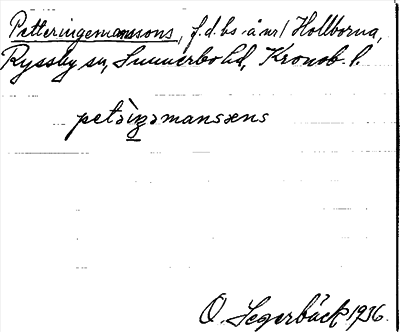 Petteringemanssons, f.d. bs. å nr 1 Hollborna,
Ryssby sn, Sunnerbo hd, Kronob. l.
petəìŋəmansəns
O. Segerbäck 1936.